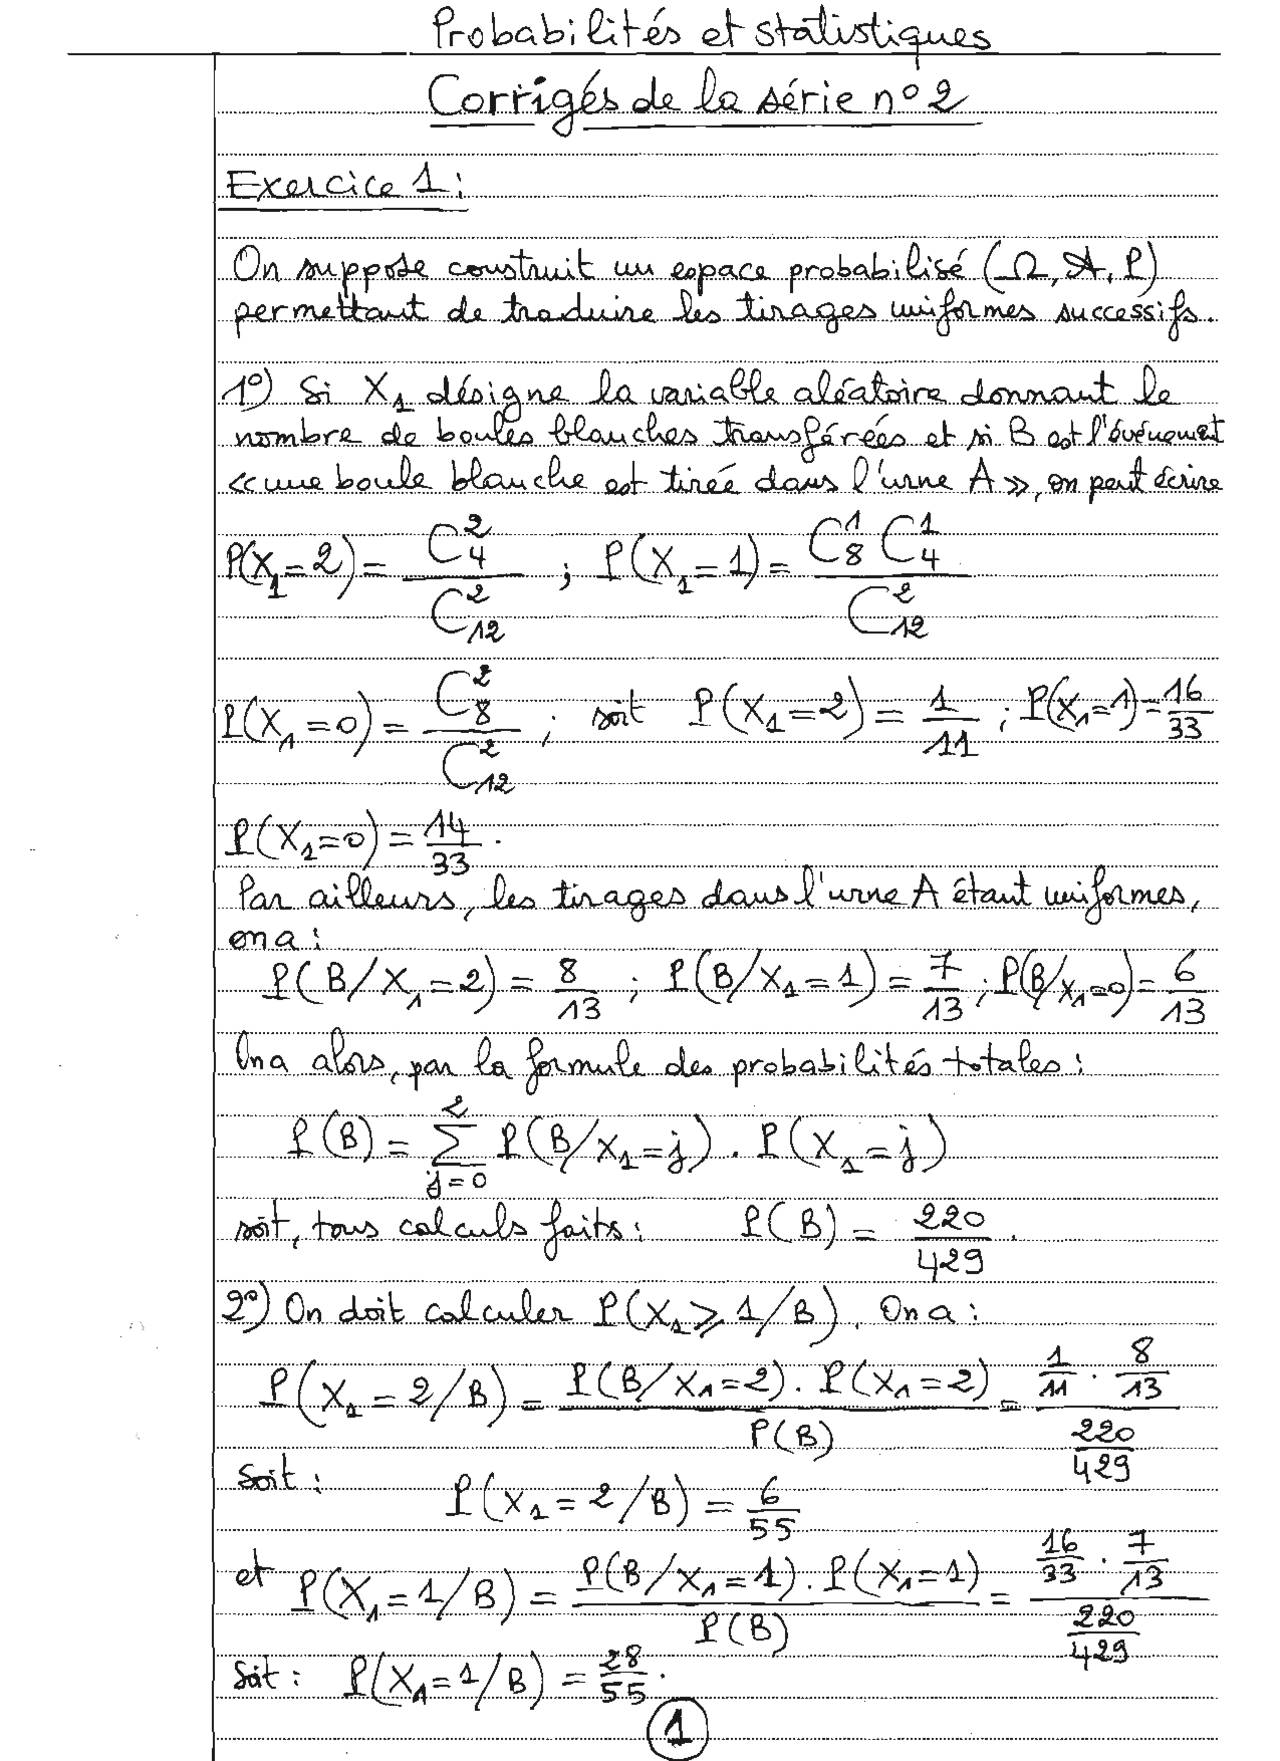 Probabilités et statistiques
Corrigés de la série n° 2
Exercice 1 :
On suppose construit un espace probabilisé (Ω, A, P)
permettant de traduire les tirages uniformes successifs.
1°) Si X₁ désigne la variable aléatoire donnant le
nombre de boules blanches transférées et si B est l'événement
<< une boule blanche est tirée dans l'urne A >>, on peut écrire
P(X₁=2) = C₄² / C₁₂² ; P(X₁=1) = C₈¹ C₄¹ / C₁₂²
P(X₁=0) = C₈² / C₁₂² ; soit P(X₁=2) = 1/11 ; P(X₁=1) = 16/33
P(X₁=0) = 14/33 .
Par ailleurs, les tirages dans l'urne A étant uniformes,
on a :
P(B/X₁=2) = 8/13 ; P(B/X₁=1) = 7/13 ; P(B/X₁=0) = 6/13
On a alors, par la formule des probabilités totales :
P(B) = Σ_{j=0}^{2} P(B/X₁=j) . P(X₁=j)
soit, tous calculs faits : P(B) = 220/429 .
2°) On doit calculer P(X₁ ⩾ 1/B). On a :
P(X₁=2/B) = P(B/X₁=2) . P(X₁=2) / P(B) = (1/11 . 8/13) / (220/429)
Soit : P(X₁=2/B) = 6/55
et P(X₁=1/B) = P(B/X₁=1) . P(X₁=1) / P(B) = (16/33 . 7/13) / (220/429)
Soit : P(X₁=1/B) = 28/55 .
1